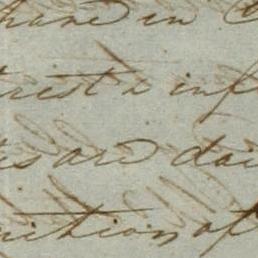 hare in
rest & inf
es are dai
nition of